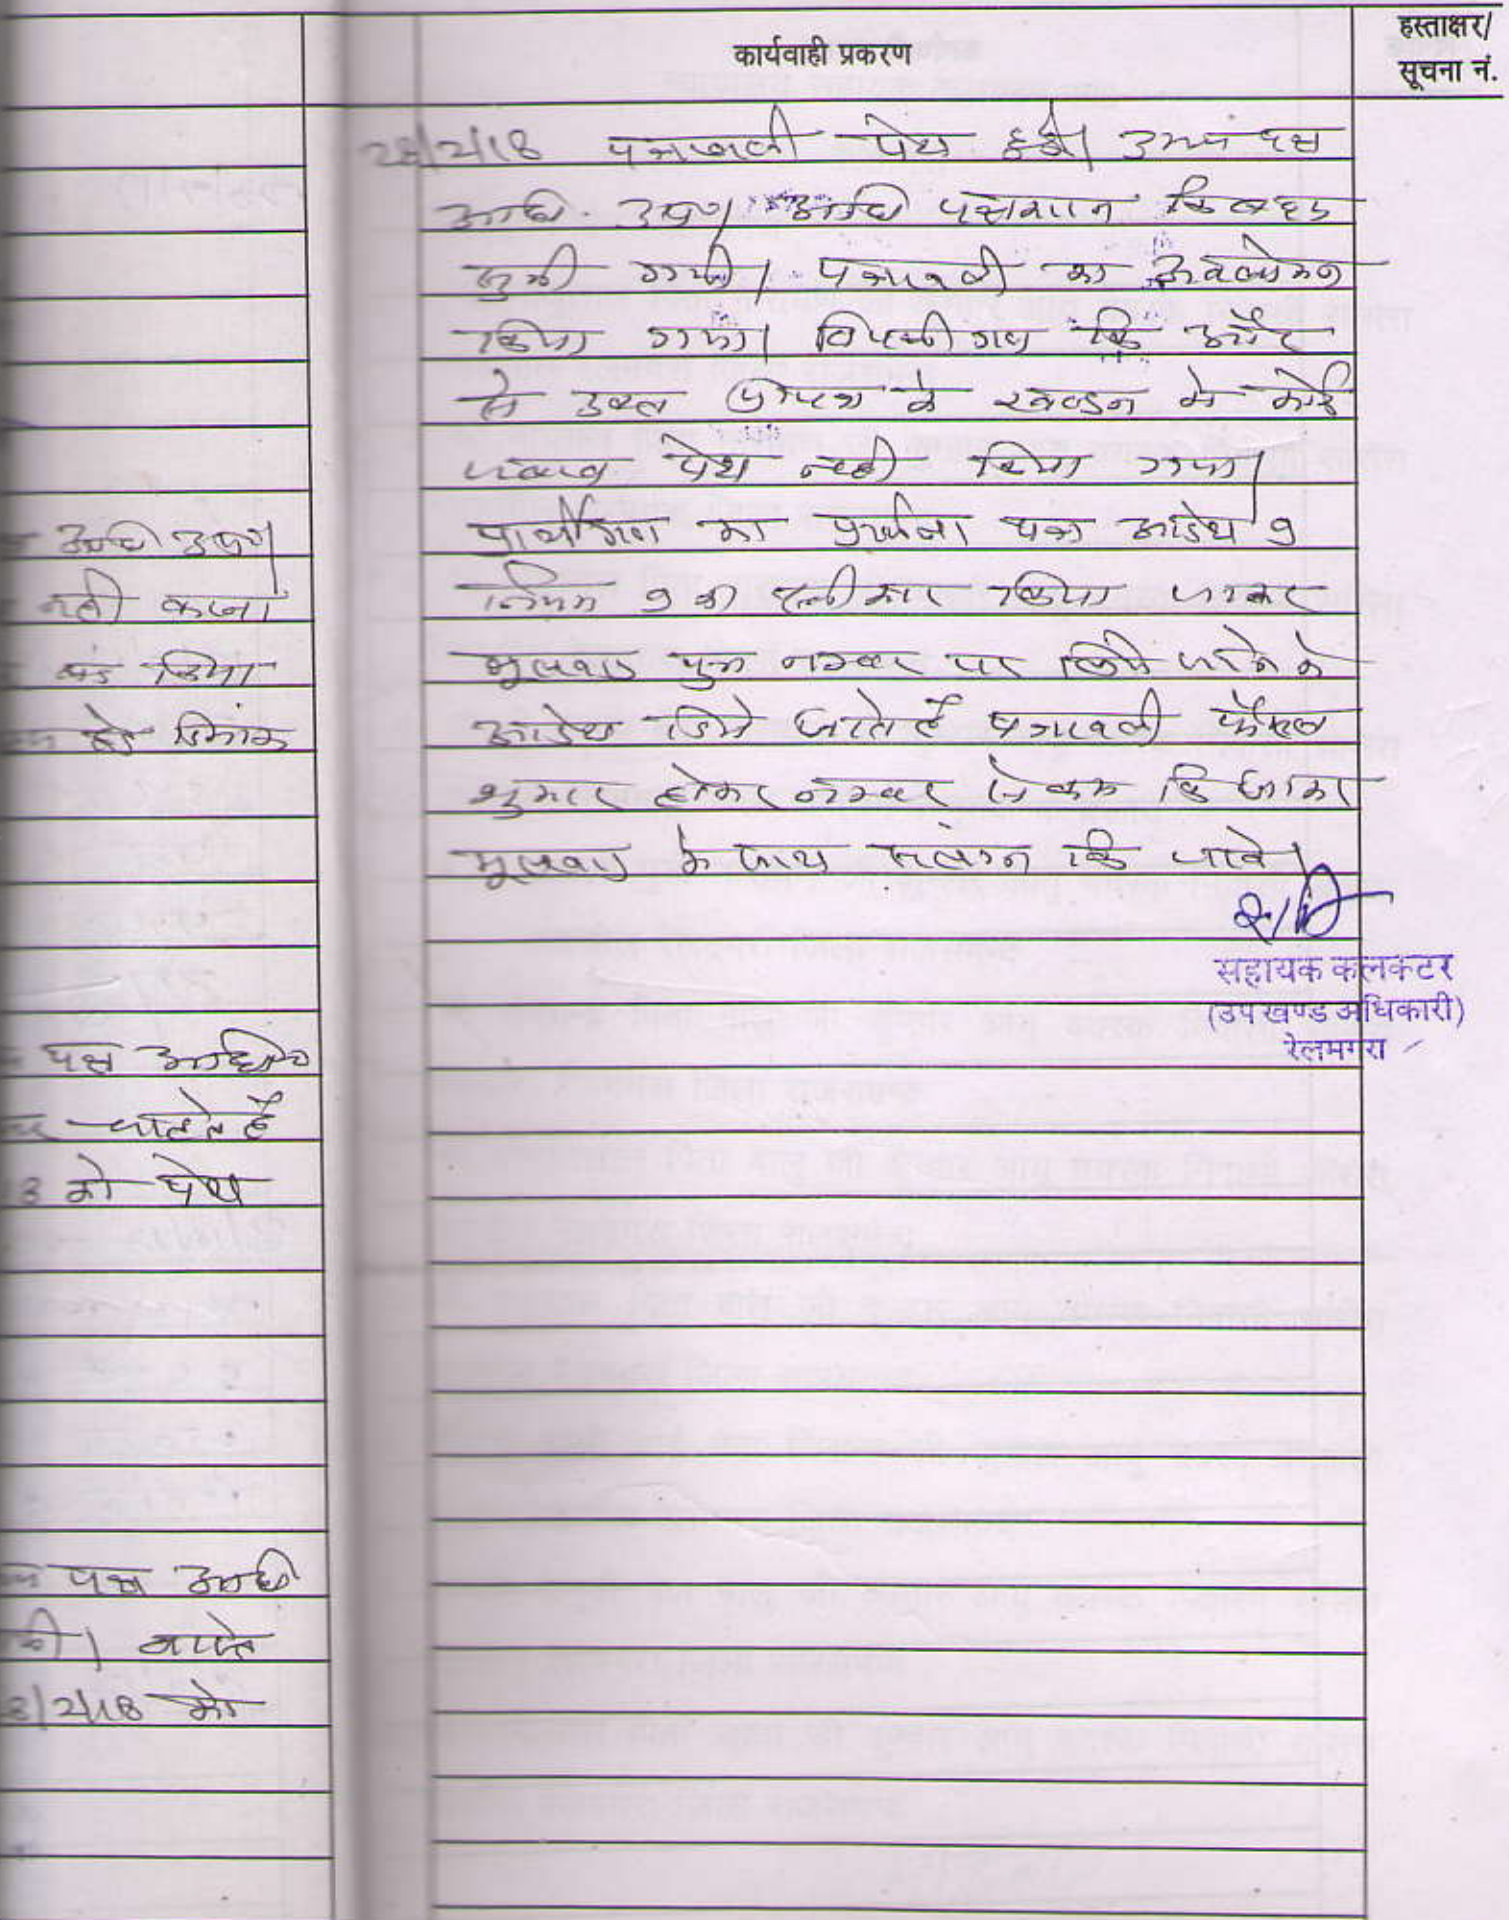 कार्यवाही प्रकरण
हस्ताक्षर/
सूचना नं.
28/2/18 पत्रावली पेश हुई। उभय पक्ष
अधि. उप०। अधि पक्षगान कि बहस
सुनी गयी। पत्रावली का अवलोकन
किया गया। विपक्षीगण कि और
से उक्त प्रा०पत्र के खण्डन मे कोई
जवाब पेश नही किया गया।
प्रार्थीगण का प्रार्थना पत्र आदेश 9
नियम 9 का स्वीकार किया जाकर
मूलवाद पुन नम्बर पर लिये जाने के
आदेश दिये जाते है पत्रावली फैसल
शुमार होकर नम्बर से कम कि जाकर
मूलवाद के साथ सलंग्न कि जावे।
सहायक कलक्टर
(उप खण्ड अधिकारी)
रेलमगरा
अधि उप०।
नही करना
बंद किया
दिनांक
पक्ष अधि०
चाहते है
को पेश
पक्ष अधि
की। वास्ते
/2/18 को